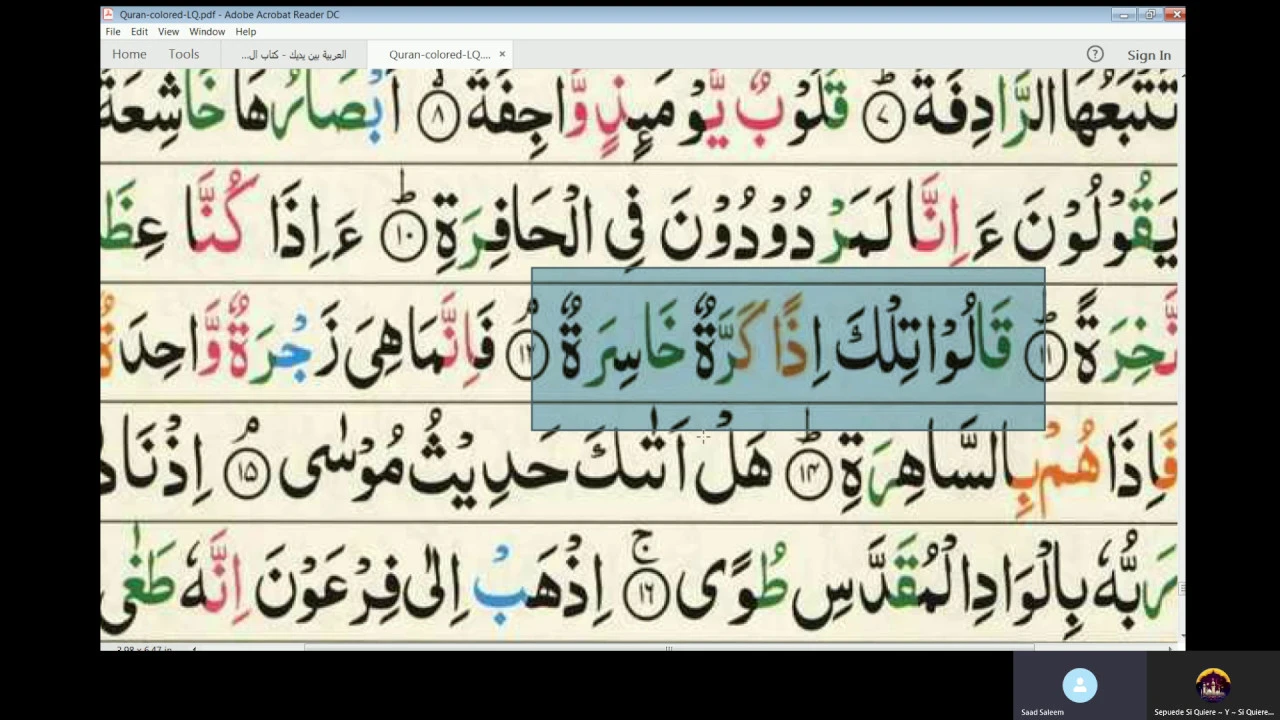 Quran-colored-LQ.pdf - Adobe Acrobat Reader DC
File Edit View Window Help
Home Tools العربية بين يديك - كتاب ال... Quran-colored-LQ.... × ? Sign In
تَتۡبَعُهَا الرَّادِفَةُ ؕ‏ ﴿۷﴾ قُلُوۡبٌ يَّوۡمَٮِٕذٍ وَّاجِفَةٌ ۙ‏ ﴿۸﴾ اَبۡصَارُهَا خَاشِعَةٌ
يَقُوۡلُوۡنَ ءَاِنَّا لَمَرۡدُوۡدُوۡنَ فِى الۡحَـافِرَةِ ؕ‏ ﴿۱۰﴾ ءَاِذَا كُنَّا
نَّخِرَةً ؕ‏ ﴿۱۱﴾ قَالُوۡا تِلۡكَ اِذًا كَرَّةٌ خَاسِرَةٌ‌ ۘ‏ ﴿۱۲﴾ فَاِنَّمَا هِىَ زَجۡرَةٌ وَّاحِدَةٌ
فَاِذَا هُمۡ بِالسَّاهِرَةِ ؕ‏ ﴿۱۴﴾ هَلۡ اَتٰٮكَ حَدِيۡثُ مُوۡسٰى‌ۘ‏ ﴿۱۵﴾
رَبُّهٗ بِالۡوَادِ الۡمُقَدَّسِ طُوًى‌ۚ‏ ﴿۱۶﴾ اِذۡهَبۡ اِلٰى فِرۡعَوۡنَ اِنَّهٗ طَغٰى
Saad Saleem
Sepuede Si Quiere ~ Y ~ Si Quiere...